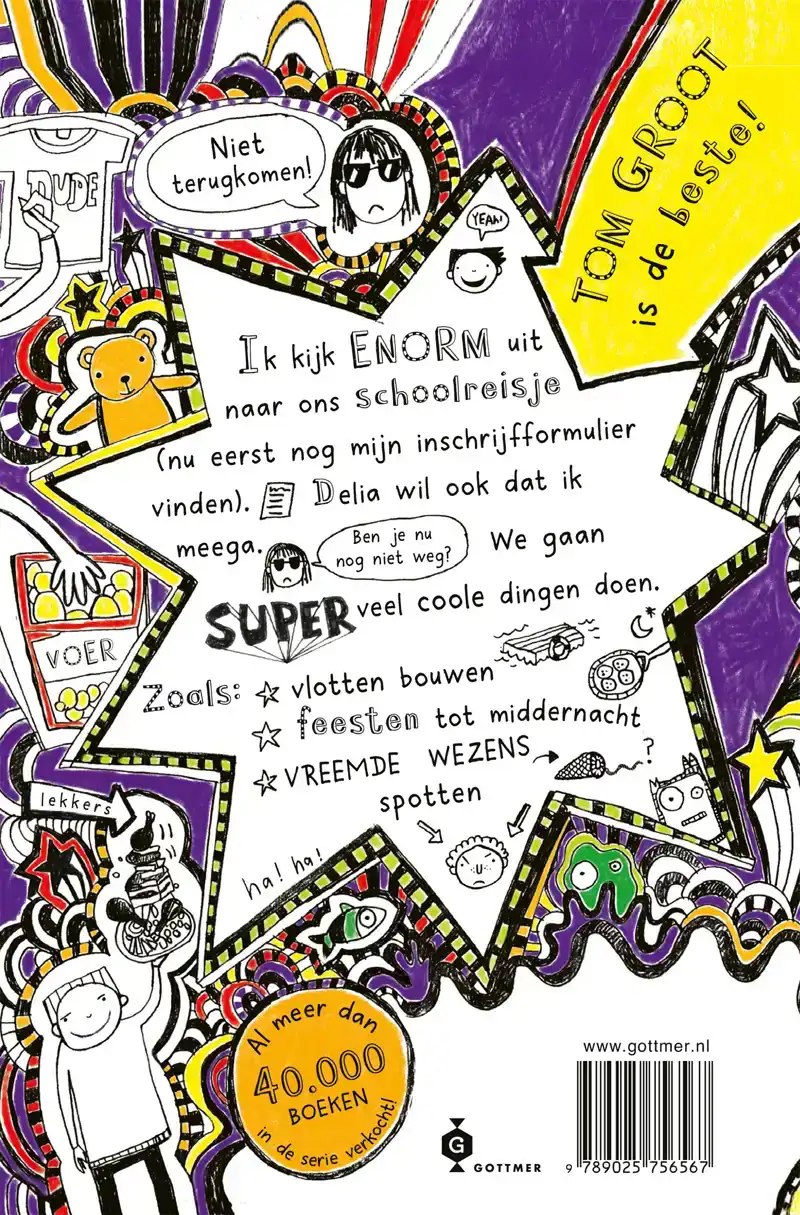 DUDE
Niet
terugkomen!
YEAH!
TOM GROOT
is de beste!
Ik kijk ENORM uit
naar ons schoolreisje
(nu eerst nog mijn inschrijfformulier
vinden). Delia wil ook dat ik
meega.
Ben je nu
nog niet weg?
We gaan
SUPER veel coole dingen doen.
Zoals: ☆ vlotten bouwen
☆ feesten tot middernacht
☆ VREEMDE WEZENS
?
spotten
VOER
lekkers
ha! ha!
Al meer dan
40.000
BOEKEN
in de serie verkocht!
www.gottmer.nl
G
GOTTMER
9 789025 756567